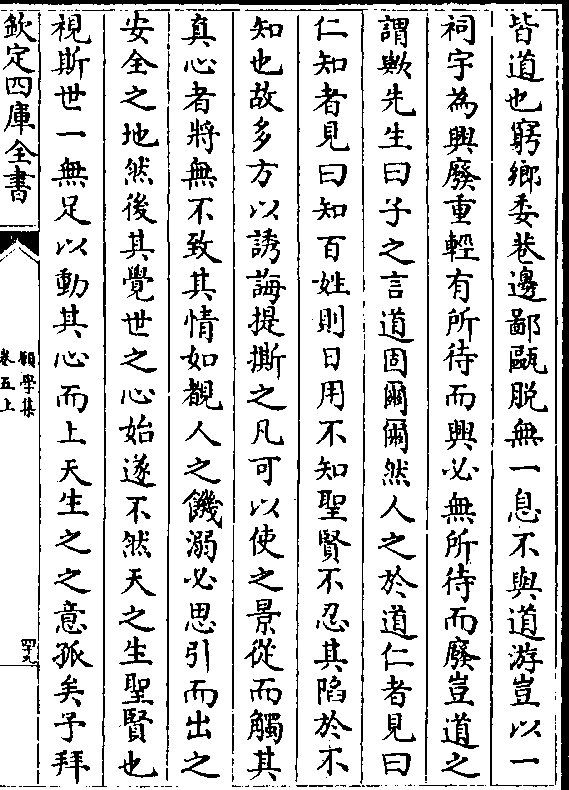 皆道也窮鄉委巷邊鄙甌脱無一息不與道游豈以一
祠宇為興廢重輕有所待而興必無所待而廢豈道之
謂歟先生曰子之言道固爾爾然人之於道仁者見曰
仁知者見曰知百姓則日用不知聖賢不忍其陷於不
知也故多方以誘誨提撕之凡可以使之景從而觸其
真心者將無不致其情如覩人之饑溺必思引而出之
安全之地然後其覺世之心始遂不然天之生聖賢也
視斯世一無足以動其心而上天生之之意孤矣予拜
欽定四庫全書
願學集
卷五上
四十九